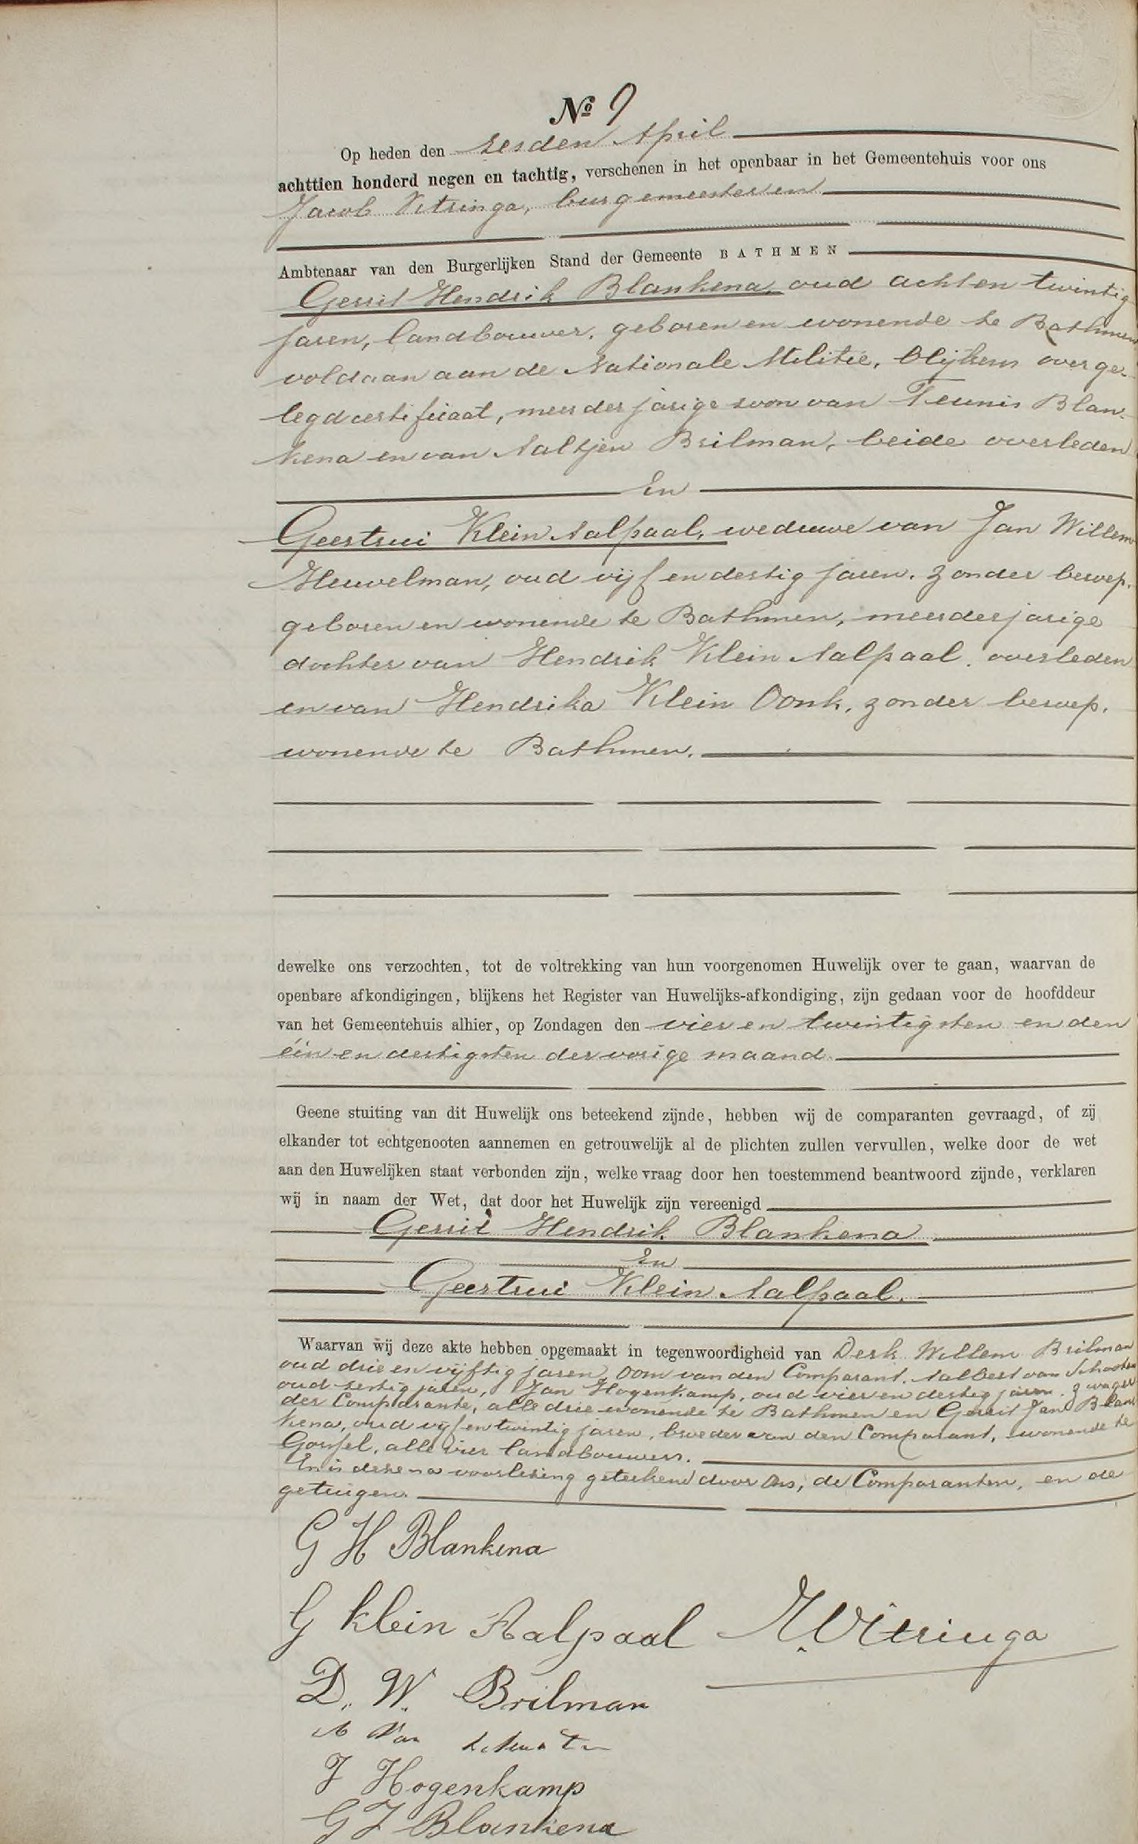 № 9
Op heden den zesden April
achttien honderd negen en tachtig, verschenen in het openbaar in het Gemeentehuis voor ons
Jacob Vitringa, burgemeester en
Ambtenaar van den Burgerlijken Stand der Gemeente BATHMEN
Gerrit Hendrik Blankena, oud acht en twintig
jaren, landbouwer, geboren en wonende te Bathmen
voldaan aan de Nationale Militie, blijkens overge-
legd certificaat, meerderjarige zoon van Teunis Blan-
kena en van Aaltjen Brilman, beide overleden
En
Geertrui Klein Aalpaal, weduwe van Jan Willem
Heuvelman, oud vijf en dertig jaren, zonder beroep,
geboren en wonende te Bathmen, meerderjarige
dochter van Hendrik Klein Aalpaal, overleden
en van Hendrika Klein Oonk, zonder beroep,
wonende te Bathmen.
dewelke ons verzochten, tot de voltrekking van hun voorgenomen Huwelijk over te gaan, waarvan de
openbare afkondigingen, blijkens het Register van Huwelijks-afkondiging, zijn gedaan voor de hoofddeur
van het Gemeentehuis alhier, op Zondagen den vier en twintigsten en den
één en dertigsten der vorige maand.
Geene stuiting van dit Huwelijk ons beteekend zijnde, hebben wij de comparanten gevraagd, of zij
elkander tot echtgenooten aannemen en getrouwelijk al de plichten zullen vervullen, welke door de wet
aan den Huwelijken staat verbonden zijn, welke vraag door hen toestemmend beantwoord zijnde, verklaren
wij in naam der Wet, dat door het Huwelijk zijn vereenigd
Gerrit Hendrik Blankena
En
Geertrui Klein Aalpaal.
Waarvan wij deze akte hebben opgemaakt in tegenwoordigheid van Derk Willem Brilman
oud drie en vijftig jaren, Oom van den Comparant, Aalbert van Schooten
oud zestig jaren, Jan Hogenkamp, oud vier en dertig jaren, zwager
der Comparante, alle drie wonende te Bathmen en Gerrit Jan Blan-
kena, oud vijf en twintig jaren, broeder van den Comparant, wonende te
Gorssel, alle vier landbouwers.
En is deze na voorlezing geteekend door Ons, de Comparanten, en de
getuigen.
G H Blankena
G klein Aalpaal
J. Vitringa
D. W. Brilman
A Van Schooten
J Hogenkamp
G J Blankena